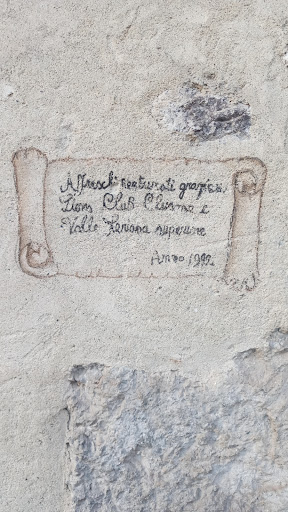 Affreschi restaurati grazie a
Lions Club Clusone e
Valle Seriana superiore
Anno 1992